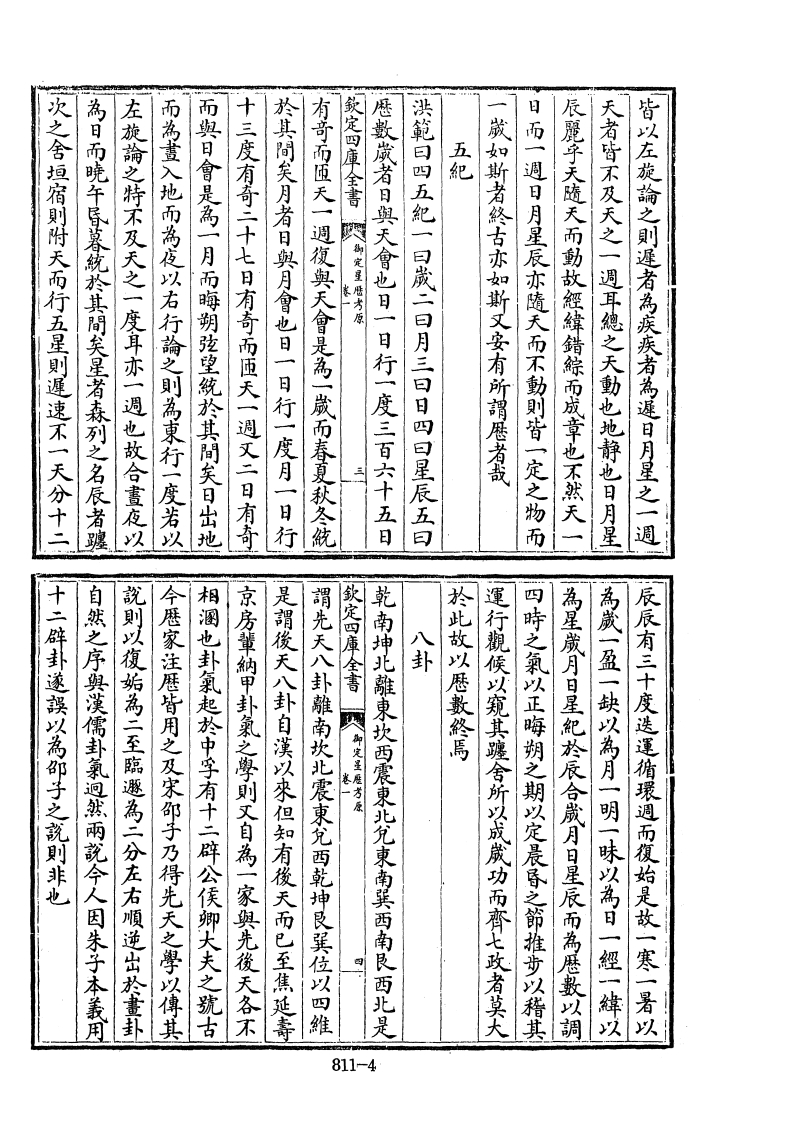 皆以左旋論之則遲者為疾疾者為遲日月星之一週
天者皆不及天之一週耳總之天動也地靜也日月星
辰麗乎天隨天而動故經緯錯綜而成章也不然天一
日而一週日月星辰亦隨天而不動則皆一定之物而
一歲如斯者終古亦如斯又安有所謂歴者哉
五紀
洪範曰四五紀一曰歲二曰月三曰日四曰星辰五曰
歴數歲者日與天會也日一日行一度三百六十五日
欽定四庫全書
御定星歴考原
卷一
三
有奇而匝天一週復與天會是為一歲而春夏秋冬統
於其間矣月者日與月會也日一日行一度月一日行
十三度有奇二十七日有奇而匝天一週又二日有奇
而與日會是為一月而晦朔弦望統於其間矣日出地
而為晝入地而為夜以右行論之則為東行一度若以
左旋論之特不及天之一度耳亦一週也故合晝夜以
為日而曉午昏暮統於其間矣星者森列之名辰者躔
次之舍垣宿則附天而行五星則遲速不一天分十二
辰辰有三十度迭運循環週而復始是故一寒一暑以
為歲一盈一缺以為月一明一昧以為日一經一緯以
為星歲月日星紀於辰合歲月日星辰而為歴數以調
四時之氣以正晦朔之期以定晨昏之節推步以稽其
運行觀候以窺其躔舍所以成歲功而齊七政者莫大
於此故以歴數終焉
八卦
乾南坤北離東坎西震東北兌東南巽西南艮西北是
欽定四庫全書
御定星歴考原
卷一
四
謂先天八卦離南坎北震東兌西乾坤艮巽位以四維
是謂後天八卦自漢以來但知有後天而已至焦延壽
京房輩納甲卦氣之學則又自為一家與先後天各不
相溷也卦氣起於中孚有十二辟公侯卿大夫之號古
今歴家注歴皆用之及宋邵子乃得先天之學以傳其
說則以復姤為二至臨遯為二分左右順逆出於畫卦
自然之序與漢儒卦氣迥然兩說今人因朱子本義用
十二辟卦遂誤以為邵子之說則非也
811-4